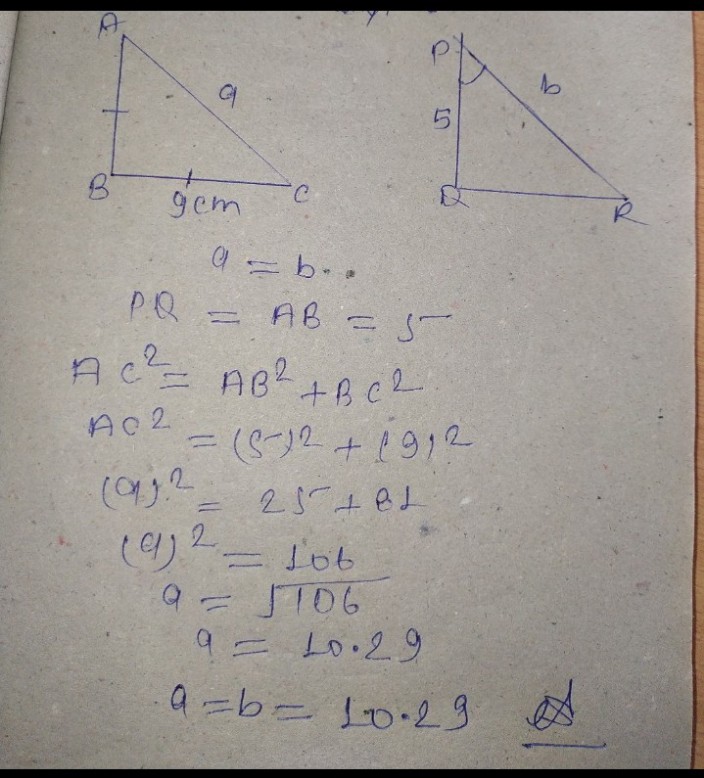 A
P
a
b
5
B
9cm
C
Q
R
a = b
PQ = AB = 5
AC² = AB² + BC²
AC² = (5)² + (9)²
(a)² = 25 + 81
(a)² = 106
a = √106
a = 10.29
a = b = 10.29